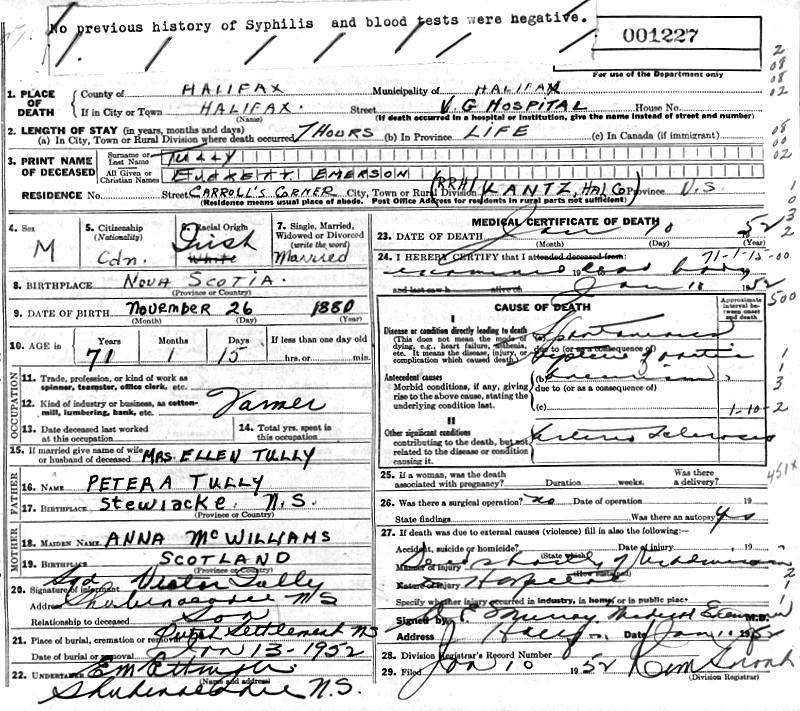 No previous history of Syphilis and blood tests were negative.
001227
For use of the Department only
1. PLACE OF DEATH
County of HALIFAX Municipality of HALIFAX
If in City or Town HALIFAX. Street V. G HOSPITAL House No.
(Name) (If death occurred in a hospital or institution, give the name instead of street and number)
2. LENGTH OF STAY (in years, months and days)
(a) In City, Town or Rural Division where death occurred 7 HOURS (b) In Province LIFE (c) In Canada (if immigrant)
3. PRINT NAME OF DECEASED
Surname or Last Name TULLY
All Given or Christian Names EVERETT EMERSON
RESIDENCE No. Street CARROLL'S CORNER City, Town or Rural Division (RRH1 KANTZ, HAL CO) Province N.S.
(Residence means usual place of abode. Post Office Address for residents in rural parts not sufficient)
4. Sex M
5. Citizenship (Nationality) Cdn.
6. Racial Origin Irish White
7. Single, Married, Widowed or Divorced (write the word) Married
8. BIRTHPLACE NOVA SCOTIA.
(Province or Country)
9. DATE OF BIRTH NOVEMBER 26 1880
(Month) (Day) (Year)
10. AGE in Years Months Days If less than one day old
71 1 15 hrs. or min.
OCCUPATION
11. Trade, profession, or kind of work as spinner, teamster, office clerk, etc.
12. Kind of industry or business, as cotton-mill, lumbering, bank, etc. Farmer
13. Date deceased last worked at this occupation
14. Total yrs. spent in this occupation
15. If married give name of wife or husband of deceased MRS. ELLEN TULLY
FATHER
16. NAME PETER A TULLY
17. BIRTHPLACE Stewiacke N.S.
(Province or Country)
MOTHER
18. MAIDEN NAME ANNA McWILLIAMS
19. BIRTHPLACE SCOTLAND
(Province or Country)
20. Signature of informant Sgd Victor Tully
Address Shubenacadie N.S
Relationship to deceased Son
21. Place of burial, cremation or removal Settlement NS
Date of burial or removal Jan 13-1952
22. UNDERTAKER E M Ettinger
(Name and address)
Shubenacadie N.S.
MEDICAL CERTIFICATE OF DEATH
23. DATE OF DEATH Jan 10 1952
(Month) (Day) (Year)
24. I HEREBY CERTIFY that I attended deceased from: 71-1-15-00
examined 19 dead body
and last saw h alive on Jan 10 1952
CAUSE OF DEATH
Approximate interval between onset and death
I
Disease or condition directly leading to death (a) Spontaneous
(This does not mean the mode of dying, e.g., heart failure, asthenia, etc. It means the disease, injury, or complication which caused death.)
due to (or as a consequence of)
Antecedent causes (b)
Morbid conditions, if any, giving rise to the above cause, stating the underlying condition last.
due to (or as a consequence of)
(c) 1-10-2
II
Other significant conditions Arterio Sclerosis
contributing to the death, but not related to the disease or condition causing it.
25. If a woman, was the death associated with pregnancy? Duration weeks. Was there a delivery?
451X
26. Was there a surgical operation? no Date of operation 19
State findings Was there an autopsy? yes
27. If death was due to external causes (violence) fill in also the following:—
Accident, suicide or homicide? Date of injury 19
(State which)
Manner of injury
(How sustained)
Nature of injury
Specify whether injury occurred in industry, in home, or in public place
Signed by Murray Medical Examiner M.D.
Address Date Jan 1952
28. Division Registrar's Record Number
29. Filed Jan 10 1952
(Division Registrar)